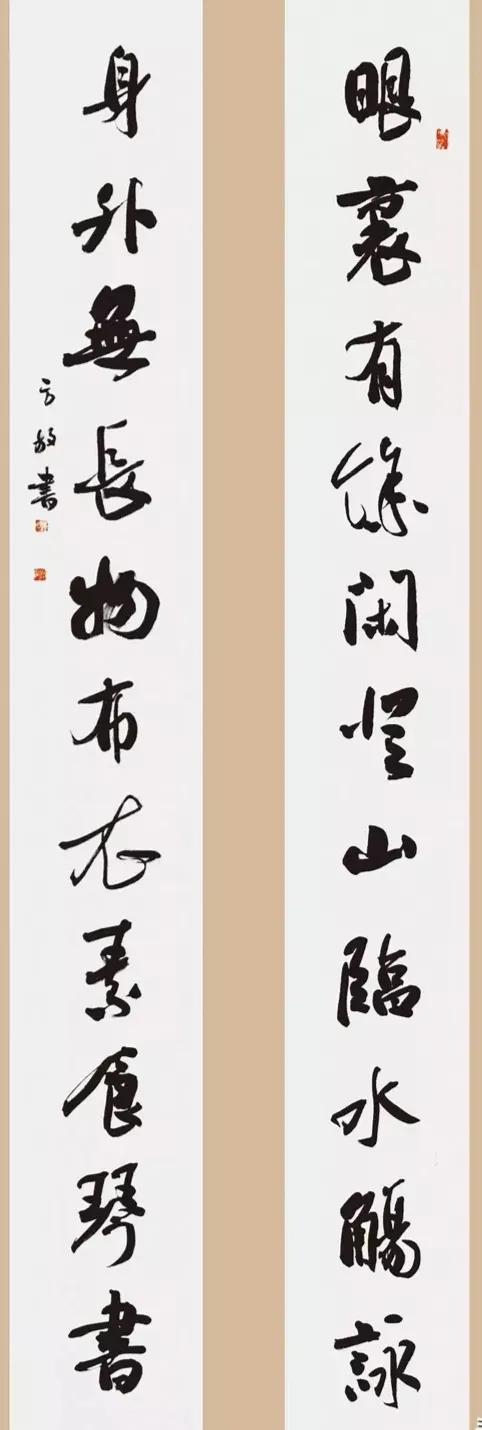 眼裏有餘閑登山臨水觴詠
身外無長物布衣素食琴書
方放書